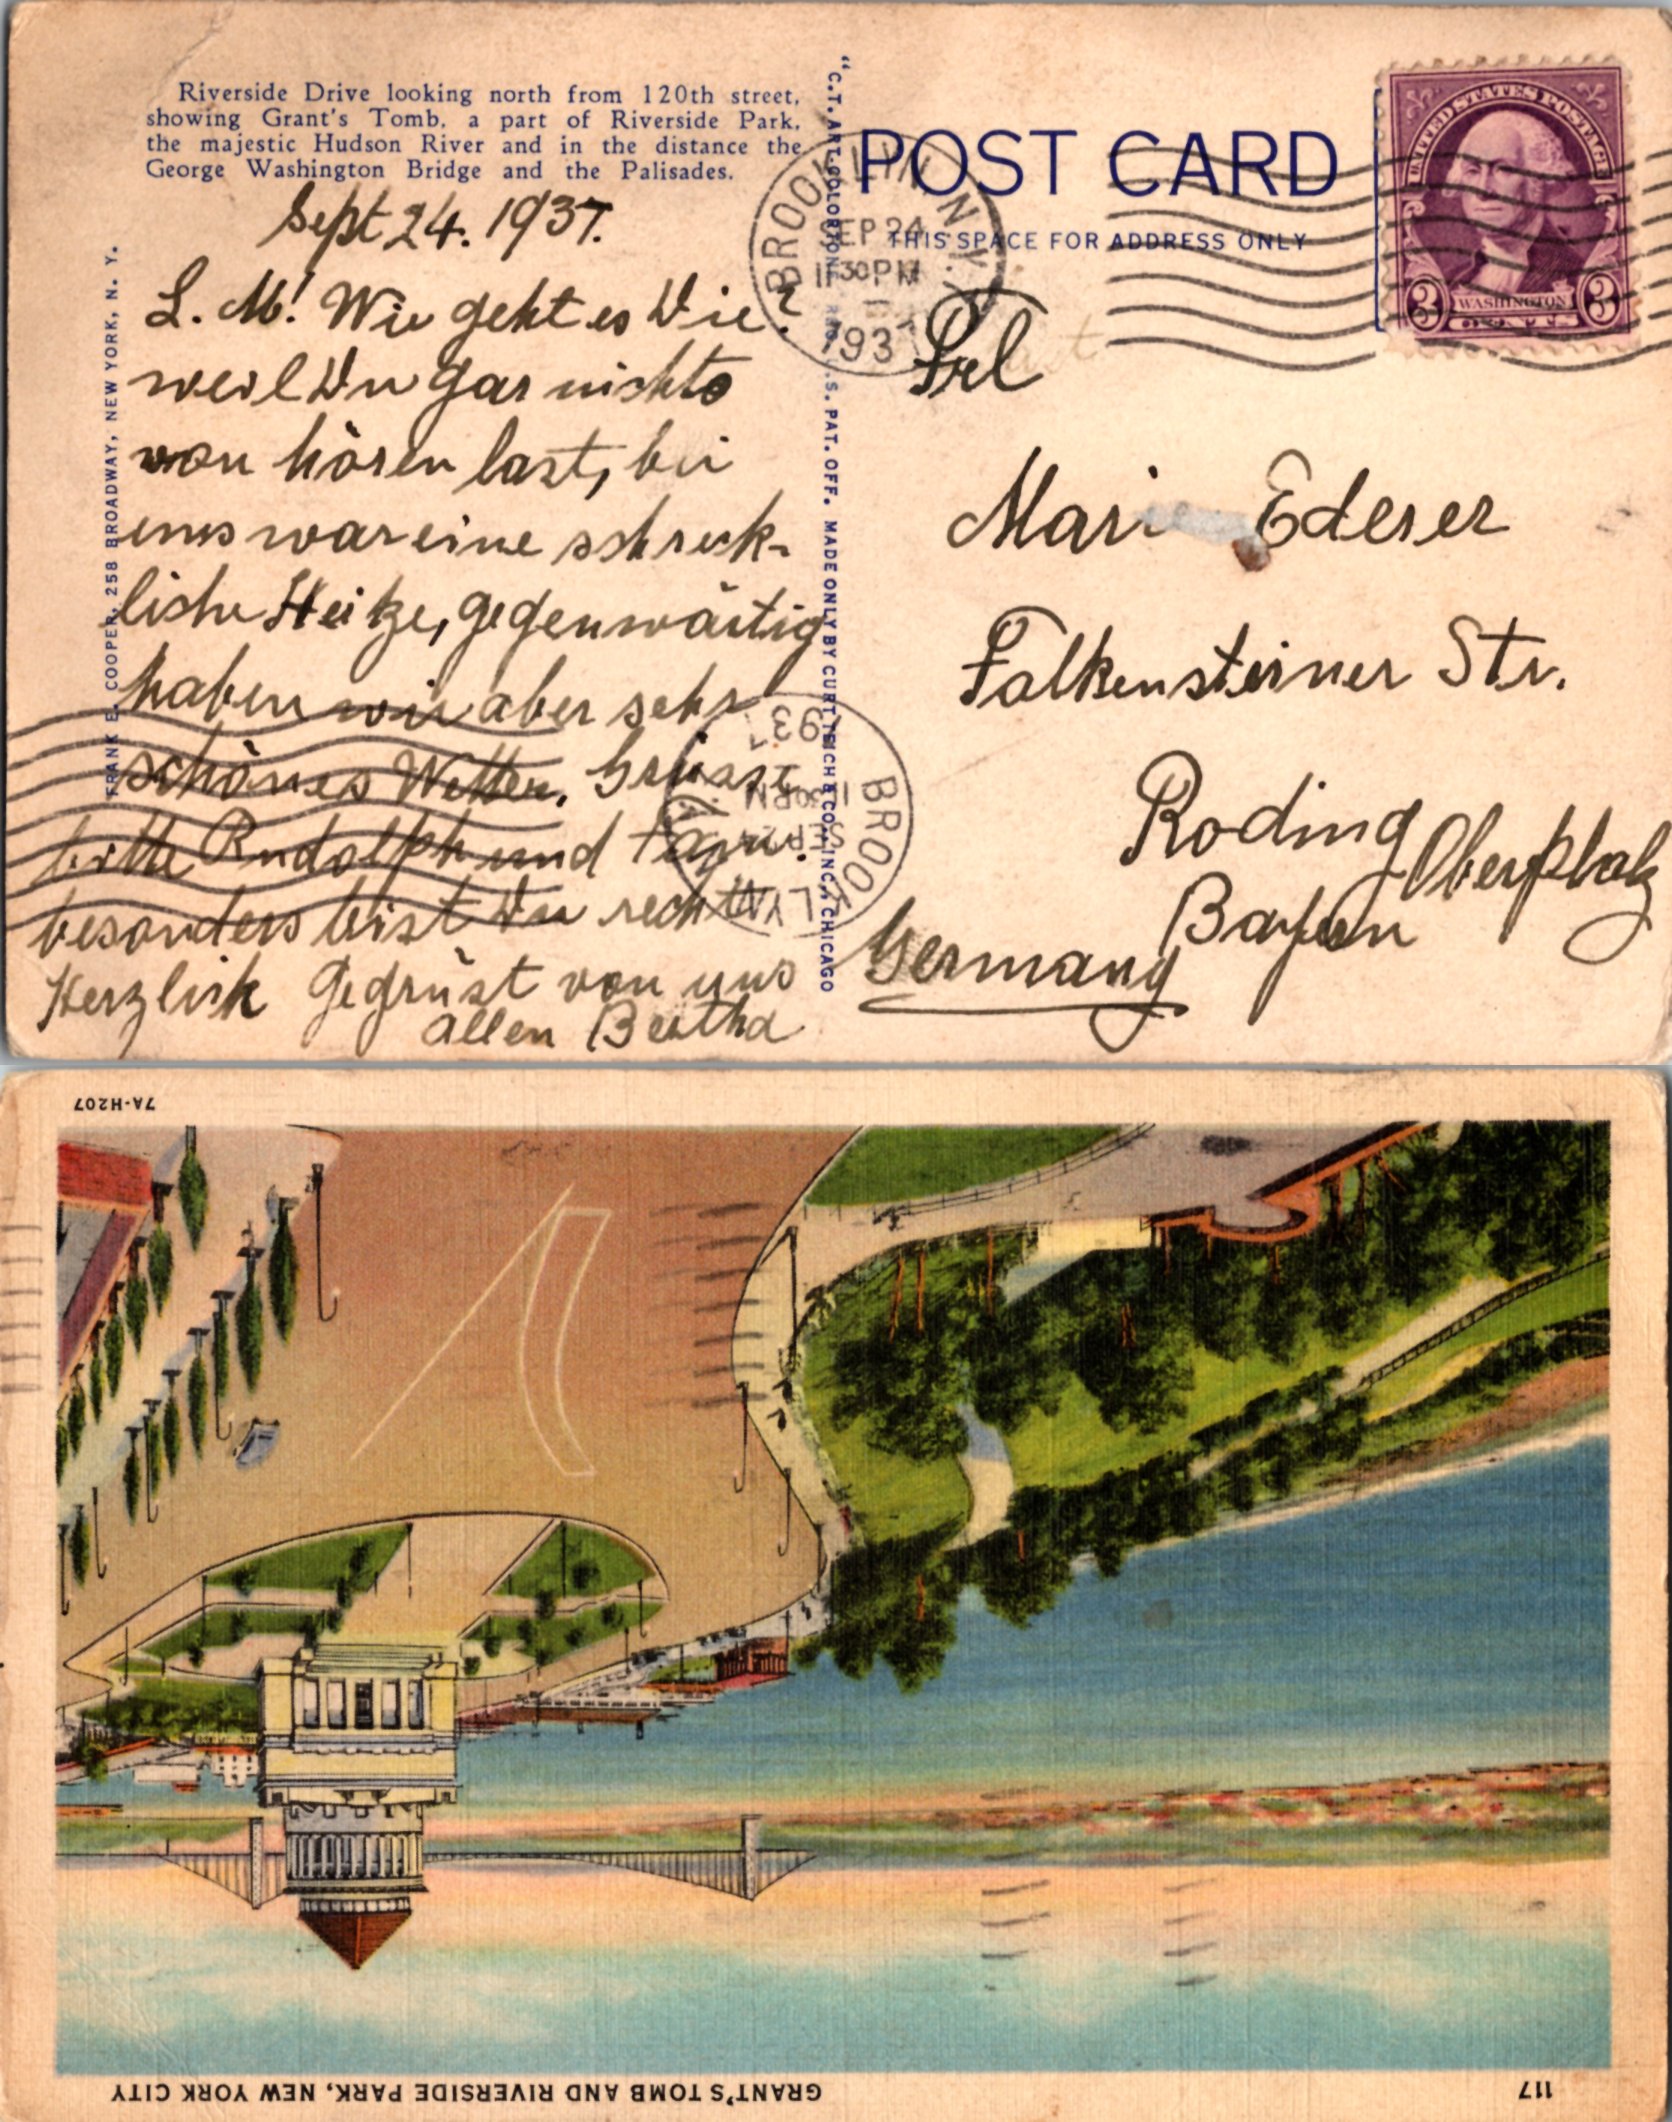 Riverside Drive looking north from 120th street,
showing Grant's Tomb, a part of Riverside Park,
the majestic Hudson River and in the distance the
George Washington Bridge and the Palisades.
Sept 24. 1937.
L. M! Wie geht es Die?
weil Du gar nichts
von hören last, bei
uns war eine schreck-
liche Heitze, gegenwärtig
haben wir aber sehr
schönes Wetter. Grüsse
bitte Rudolph und
besonders bist Du recht
Herzlich Gegrüst von uns
allen Bertha
FRANK E. COOPER, 258 BROADWAY, NEW YORK, N. Y.
"C.T. ART-COLORTONE REG. U.S. PAT. OFF. MADE ONLY BY CURT TEICH & CO., INC., CHICAGO
POST CARD
THIS SPACE FOR ADDRESS ONLY
BROOKLYN N.Y.
SEP 24
11 30 PM
1937
UNITED STATES POSTAGE
3 WASHINGTON 3
Frl
Ederer
Falkensteiner Str.
Roding Oberpfalz
Bayern
Germany
BROOKLYN
SEP 24
11 30 PM
1937
7A-H207
GRANT'S TOMB AND RIVERSIDE PARK, NEW YORK CITY
117